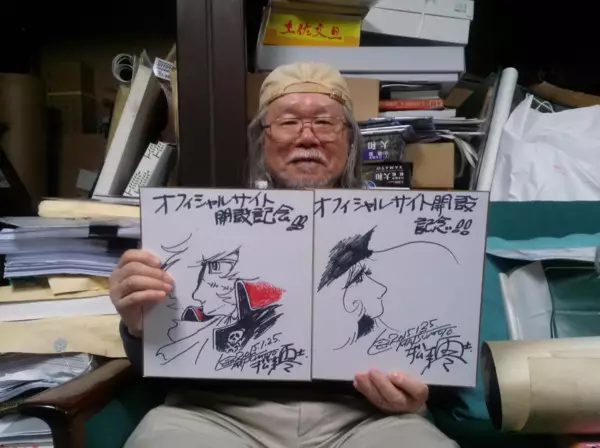 土佐文旦
大和
大和
YAMATO
オフィシャルサイト
開設記念!!
15.1.25
松本零士
オフィシャルサイト開設
記念!!
2015.1.25
松本零士